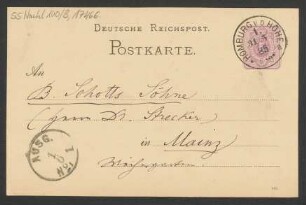 55 Nachl 100/B, 17466
DEUTSCHE REICHSPOST.
POSTKARTE.
HOMBURG v.d. HÖHE
An
B. Schotts Söhne
(Herrn Dr. Strecker)
in Mainz
Weihergarten
AUSG.